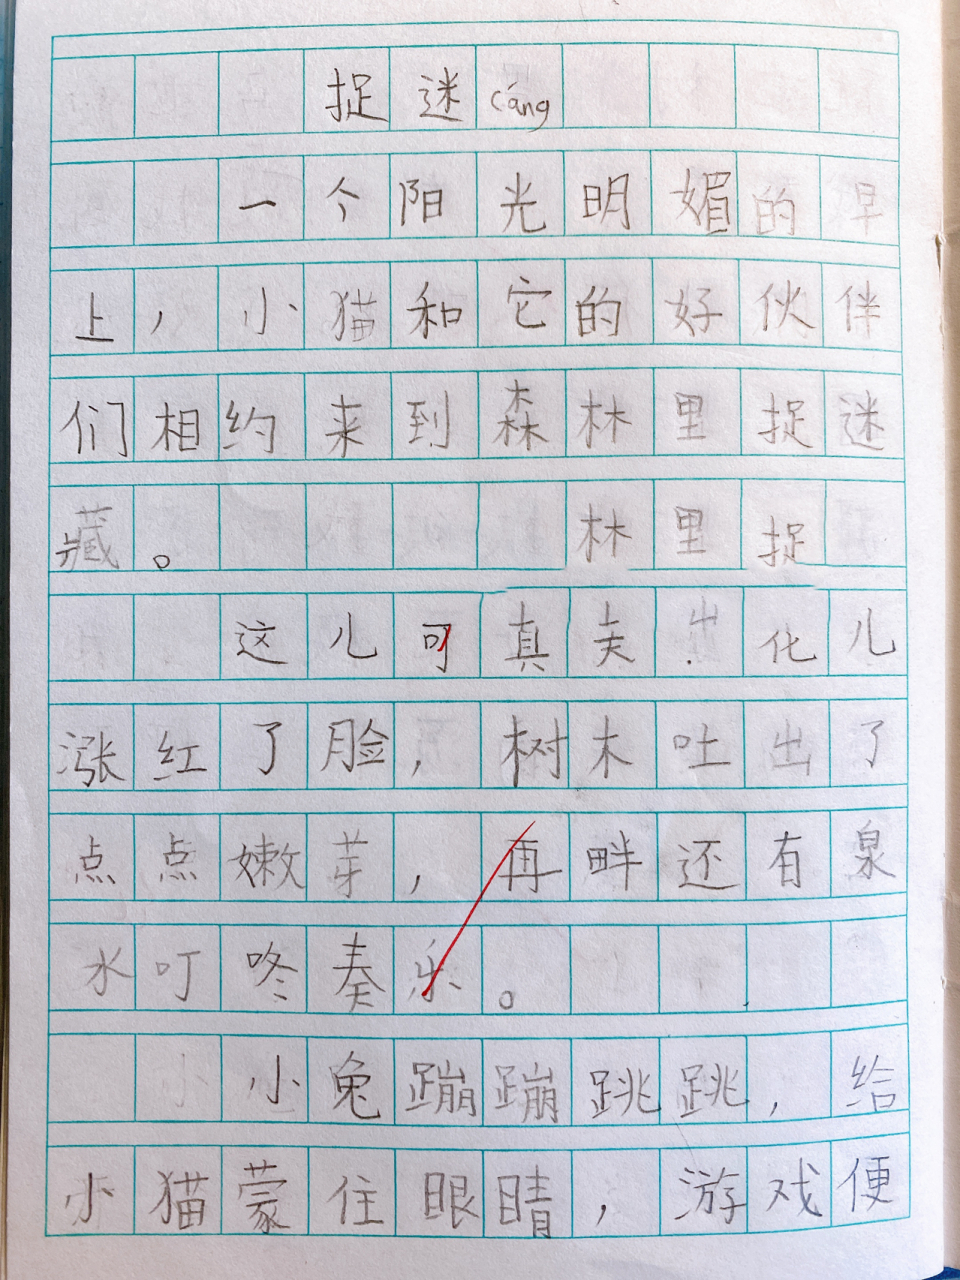 捉迷cáng
一个阳光明媚的早
上，小猫和它的好伙伴
们相约来到森林里捉迷
藏。林里捉
这儿可真美出化儿
涨红了脸，树木吐出了
点点嫩芽，再畔还有泉
水叮咚奏乐。
小小兔蹦蹦跳跳，给
小猫蒙住眼睛，游戏便